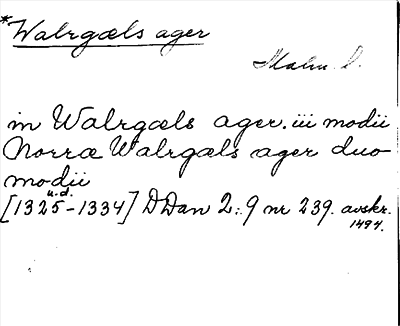 *Walrgæls ager
Malm S.
in Walrgæls ager. iii modii
Norræ Walrgæls ager duo
modii
u.d.
[1325-1334] DDan 2:9 nr 239. avskr.
1494.